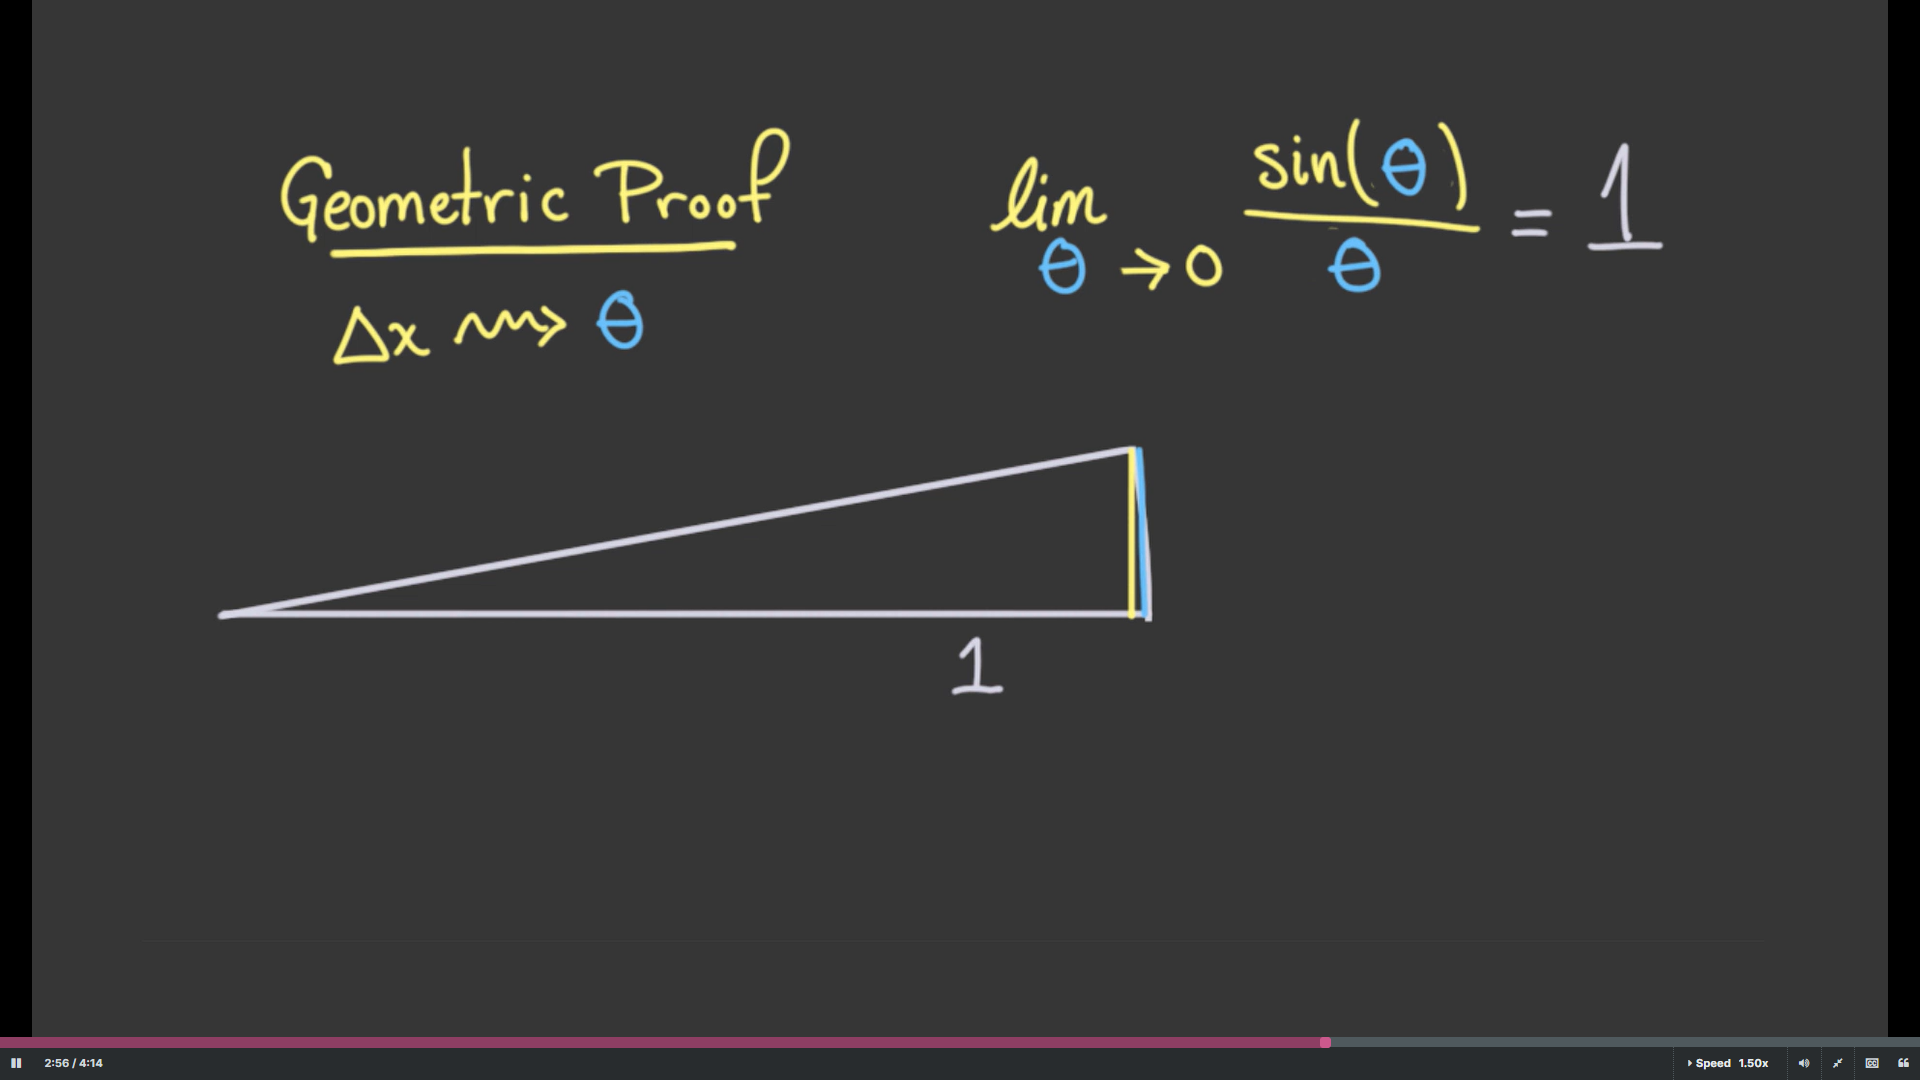 Geometric Proof
Δx ⇝ θ
lim θ→0 sin(θ)/θ = 1
1
2:56 / 4:14
Speed 1.50x
CC